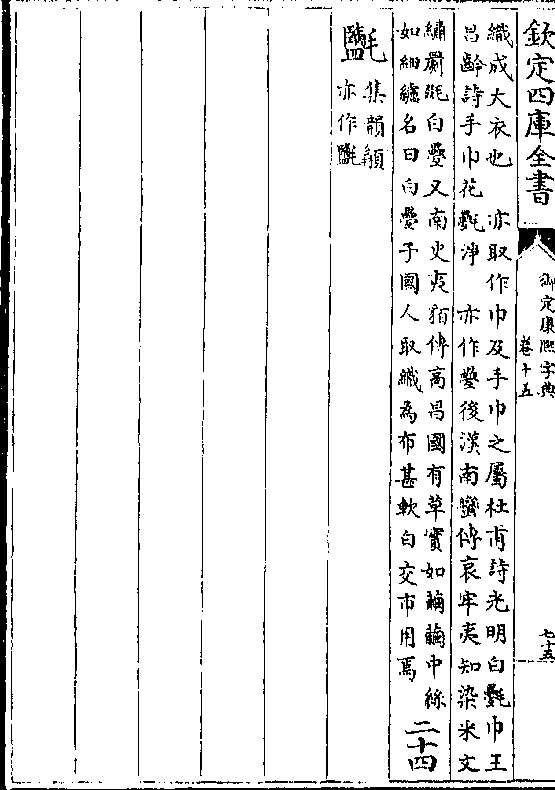 欽定四庫全書
御定康熙字典
卷十五
七十五
織成大衣也　亦取作巾及手巾之屬杜甫詩光明白氎巾王
昌齡詩手巾花氎淨　亦作疊後漢南蠻傳哀牢夷知染米文
繡罽㲲白疊又南史夷貊傳高昌國有草實如繭繭中絲
如細纑名曰白疊子國人取織為布甚軟白交市用焉
二十四
集韻
亦作